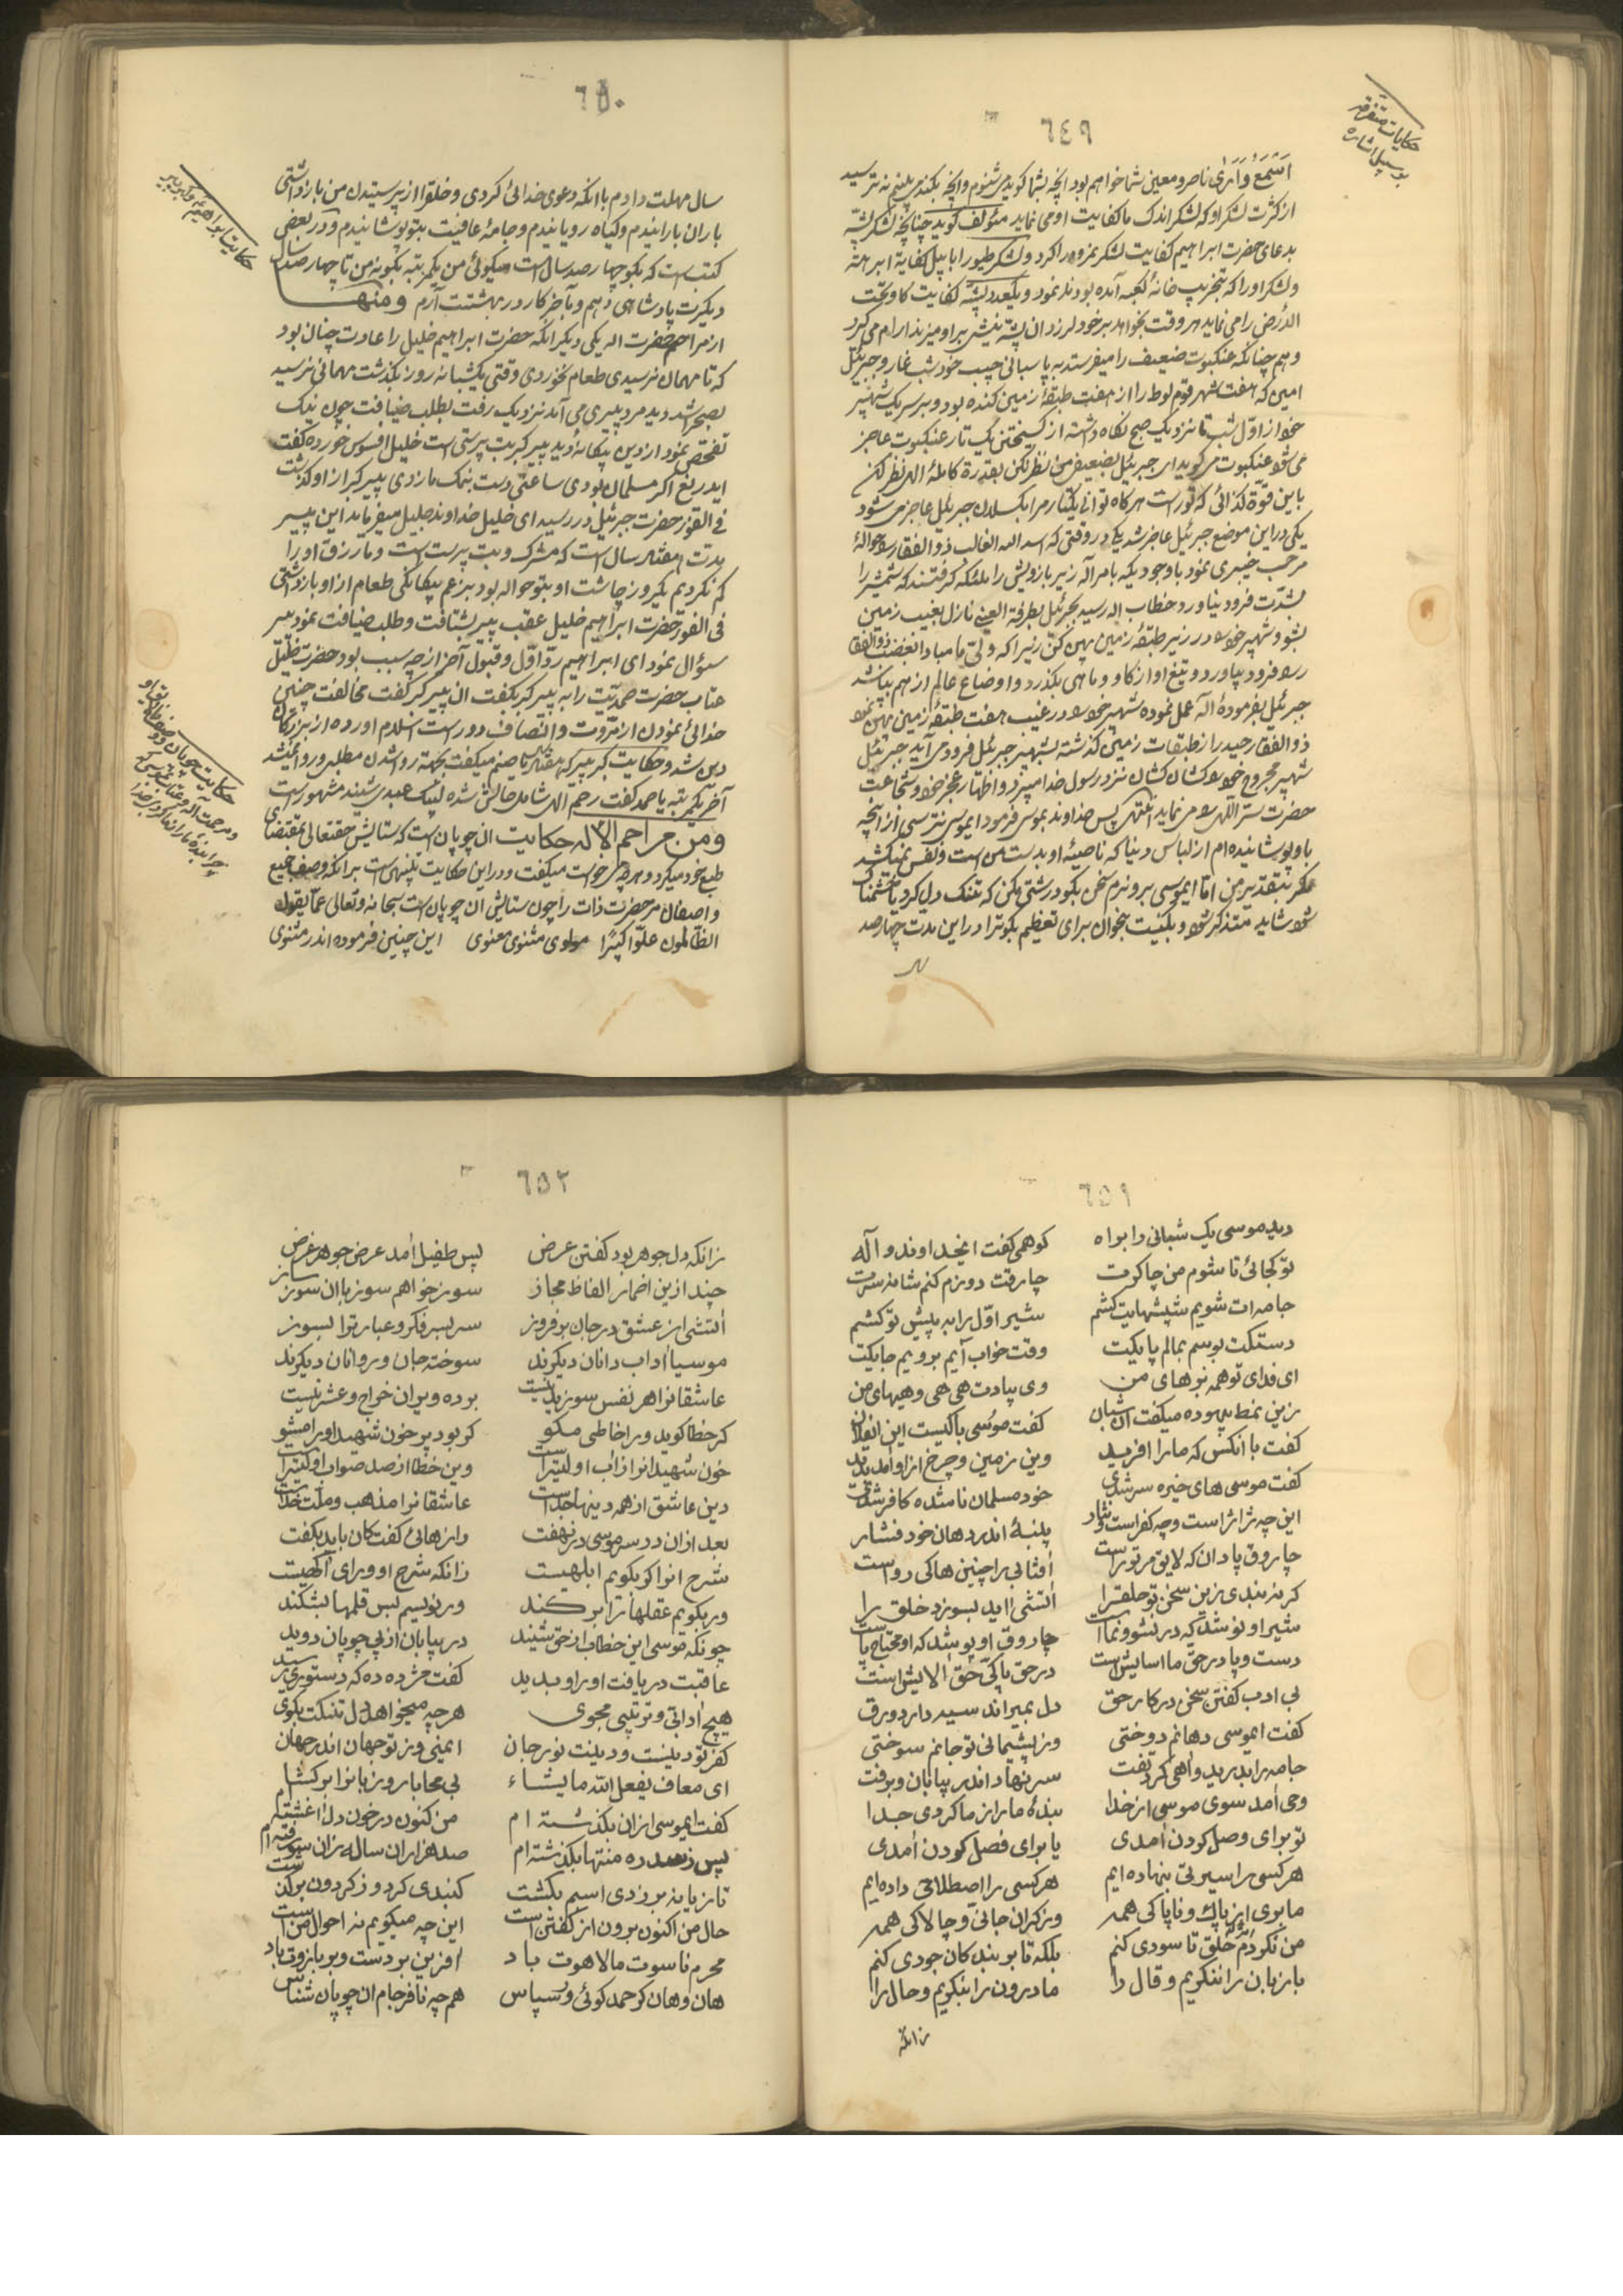 ٦٤٩
حکایات متفرقه
بر سبیل اشاره
اَسْمَعُ وَاَرٰى ناصر و معین شما خواهم بود انچه بشما کوید می شنوم و انچه بکند می بینم نه ترسید
از کثرت لشکر او که لشکر اندک ما کفایت او می نماید مئولف کوید چنانچه لشکر پشّه
بدعای حضرت ابراهیم کفایت لشکر نمرود را کرد و لشکر طیورا ابابیل کفایة ابرهه
و لشکر او را که بتخریب خانهٔ کعبه آمده بودند نمود و یکعدد پشّه کفایت کاو تحت
الارض را می نماید هر وقت بخواهد بر خود لرزد ان پشّه نیشی بر او میزند آرام می کیرد
و هم چنانکه عنکبوت ضعیف را میفرستد به پاسبانی حبیب خود شب غار و جبرئیل
امین که هفت شهر قوم لوط را از هفت طبقهٔ زمین کنده بود و بر سر یک شهپر
خود از اوّل شب تا نزدیک صبح نکاه داشته از کسیختن یک تار عنکبوت عاجز
می شود عنکبوت می کوید ای جبرئیل بضعیفی من نظر مکن بقدرة کاملهٔ الهی نظر کن
باین قوّة کذائی که توراست هر کاه توانی یکتار مرا بکسلان جبرئیل عاجز می شود
یکی در این موضع جبرئیل عاجز شد یکی در وقتی که اسد الله الغالب ذو الفقار را حوالهٔ
مرحب خیبری نمود با وجودیکه بامر اله زیر بازویش را ملئکه کرفتند که شمشیر را
بشدّت فرود نیاورد خطاب اله رسید بجبرئیل بطرفة العینی نازل بغیب زمین
بشو و شهپر خود در زیر طبقهٔ زمین پهن کن زیرا که ولیّ ما مبادا بغضب ذو الفقار
را فرود بیاورد و تیغ او از کاو و ماهی بکذرد و اوضاع عالم از هم بپاشد
جبرئیل بفرمودهٔ اله عمل نموده شهپر خود در غیب هفت طبقهٔ زمین پهن نمود
ذو الفقار حیدر از طبقات زمین کذشته بشهپر جبرئیل فرود می آید جبرئیل
شهپر مجروح خود را کشان کشان نزد رسول خدا میبرد و اظهار عجز خود و شجاعت
حضرت سرّ اللهی را می نماید انتهی پس خداوند بموسی فرمود ایموسی نترسی از انچه
باو پوشانیده ام از لباس دنیا که ناصیهٔ او بدست من است و نفس نمیکشد
مکر بتقدیر من امّا ایموسی برو نرم سخن بکو درشتی مکن که تنک دل کردد یا خشمناک
شود شاید متذکر شود و بکنیت بخوان برای تعظیم بکو ترا در این مدت چهار صد
سال
٦٥٠
حکایت ابراهیم و کبر پیر
سال مهلت دادم باانکه دعوی خدائی کردی و خلق را از پرستیدن من باز داشتی
باران بارانیدم و کیاه رویانیدم و جامهٔ عافیت بتو پوشانیدم و در بعضی
کتبست که بکو چهار صد سال است میکوئی من یکمرتبه بکو نه من تا چهار صد سال
دیکرت پادشاهی دهم و بآخر کار در بهشتت آرم ومنهــا
از مراحم حضرت اله یکی دیکر انکه حضرت ابراهیم خلیل را عادت چنان بود
که تا مهمان نرسیدی طعام نخوردی وقتی یکشبانه روز بکذشت مهمانی نرسید
بصحرا شد دید مرد پیری می آید نزدیک رفت بطلب ضیافت چون نیک
تفحّص نمود از دین بیکانه دید پیر کبریت پرستی است خلیل افسوس خورده کفت
ایدریغ اکر مسلمان بودی ساعتی دست بنمک ما زدی پیر کبر از او کذشت
فی الفور حضرت جبرئیل در رسید ای خلیل خداوند جلیل میفرماید این پیر
مدّت هفتاد سال است که مشرک و بت پرست است و ما رزق او را
کم نکردیم یکروز چاشت او بتو حواله بود بزعم بیکانکی طعام از او باز داشتی
فی الفور حضرت ابراهیم خلیل عقب پیر بشتافت و طلب ضیافت نمود پیر
سؤال نمود ای ابراهیم ردّ اوّل و قبول آخر از چه سبب بود حضرت خلیل
عتاب حضرت صمدیّت را به پیر کبر بکفت ان پیر کبر کفت مخالفت چنین
خدائی نمودن از مروّت و انصاف دور است اسلام اورده از بزرکان
دین شد و حکایت کبر پیر که هفتاد سال یا صنم میکفت بجهته روا شدن مطلبی و روا نمیشد
آخر یکمرتبه یا صمد کفت رحم الهی شامل حالش شده لبیک عبدی شنید مشهور است
ومن مراحم الاله حکایت ان چوپان است که ستایش حقتعالی بمقتضای
طبع خود میکرد و هر چه می خواست میکفت و در این حکایت تنبیهی است برانکه وصف جمیع
واصفان مر حضرت ذات را چون ستایش ان چوپان است سبحانه و تعالی عمّا یقول
الظّالمون علوّا کبیرًا مولوی مثنوی معنوی این چنین فرموده اندر مثنوی
٦٥١
دید موسی یک شبانی را براه کو همی کفت ایخداوند و اله
تو کجائی تا شوم من چاکرت چارقت دوزم کنم شانه سرت
جامه ات شویم شپشهایت کشم شیر اوّل را به پیش تو کشم
دستکت بوسم بمالم پایکت وقت خواب آیم بروبم جایکت
ای فدای تو همه بزهای من وی بیادت هی هی و هیهای من
زین نمط بیهوده میکفت ان شبان کفت موسی با کیست این ایفلان
کفت با انکس که ما را افرید وین زمین و چرخ از او امد پدید
کفت موسی های خیره سر شدی خود مسلمان نامشده کافر شدی
این چه ژاژ است و چه کفر است و فشار پنبهٔ اندر دهان خود فشار
چاروق پاد ان که لایق مر تو راست افتابی را چنین ها کی رواست
کر نه بندی زین سخن تو حلق را اتشی اید بسوزد خلق را
شیر او نوشد که در نشو و نما است چاروق او پوشد که او محتاج پاست
دست و پا در حق ما اسایش است در حق پاکی حق الایش است
بی ادب کفتن سخن در کار حق دل بمیراند سیه دارد ورق
کفت ایموسی دهانم دوختی وز پشیمانی تو جانم سوختی
جامه را بدرید و اهی کرد تفت سر نهاد اندر بیابان و برفت
وحی امد سوی موسی از خدا بندهٔ ما را ز ما کردی جدا
تو برای وصل کردن امدی یا برای فصل کردن امدی
هر کسی را سیرتی بنهاده ایم هر کسی را اصطلاحی داده ایم
ما بری از پاک و ناپاکی همه وز کران جانی و چالاکی همه
من نکردم خلق تا سودی کنم بلکه تا بر بندکان جودی کنم
ما زبان را ننکریم و قال را ما درون را بنکریم و حال را
زانکه
٦٥٢
زانکه دل جوهر بود کفتن عرض پس طفیل امد عرض جوهر غرض
چند ازین اضمار الفاظ مجاز سوز خواهم سوز باان سوز ساز
اتشی از عشق در جان بر فروز سر بسر فکر و عبارت را بسوز
موسیا اداب دانان دیکرند سوخته جان و روانان دیکرند
عاشقانرا هر نفس سوزیدنیست بر ده ویران خراج و عشر نیست
کر خطا کوید ورا خاطی مکو کر بود پر خون شهید او را مشو
خون شهیدانرا ز اب اولیتر است وین خطا از صد صواب اولیتر است
دین عاشق از همه دینها جداست عاشقانرا مذهب و ملّت خداست
بعد ازان در سر موسی در نهفت رازهائی کفت کان باید بکفت
شرح انرا کر بکویم ابلهیست زانکه شرح او ورای اکهیست
ور بکویم عقلها را بر کند ور نویسم بس قلمها بشکند
چونکه موسی این خطاب از حق شنید در بیابان از پی چوپان دوید
عاقبت دریافت او را و بدید کفت مژده ده که دستوری رسید
هیچ ادابی و ترتیبی مجوی هر چه میخواهد دل تنکت بکوی
کفر تو دینست و دینت نور جان ایمنی وز تو جهان اندر جهان
ای معاف یفعل اللّه ما یشاء بی محابا رو زبانرا بر کشا
کفت ایموسی ازان بکذشته ام من کنون در خون دل اغشته ام
پس ز سدره منتها بکذشته ام صد هزاران ساله زان سو رفته ام
تازیانه بر زدی اسبم بکشت کنبدی کرد و ز کردون بر کذشت
حال من اکنون برون از کفتن است این چه میکویم نه احوال من است
محرم ناسوت ما لاهوت باد افرین بر دست و بر بازوت باد
هان و هان کر حمد کوئی و سپاس هم چه نافرجام ان چوپان شناس